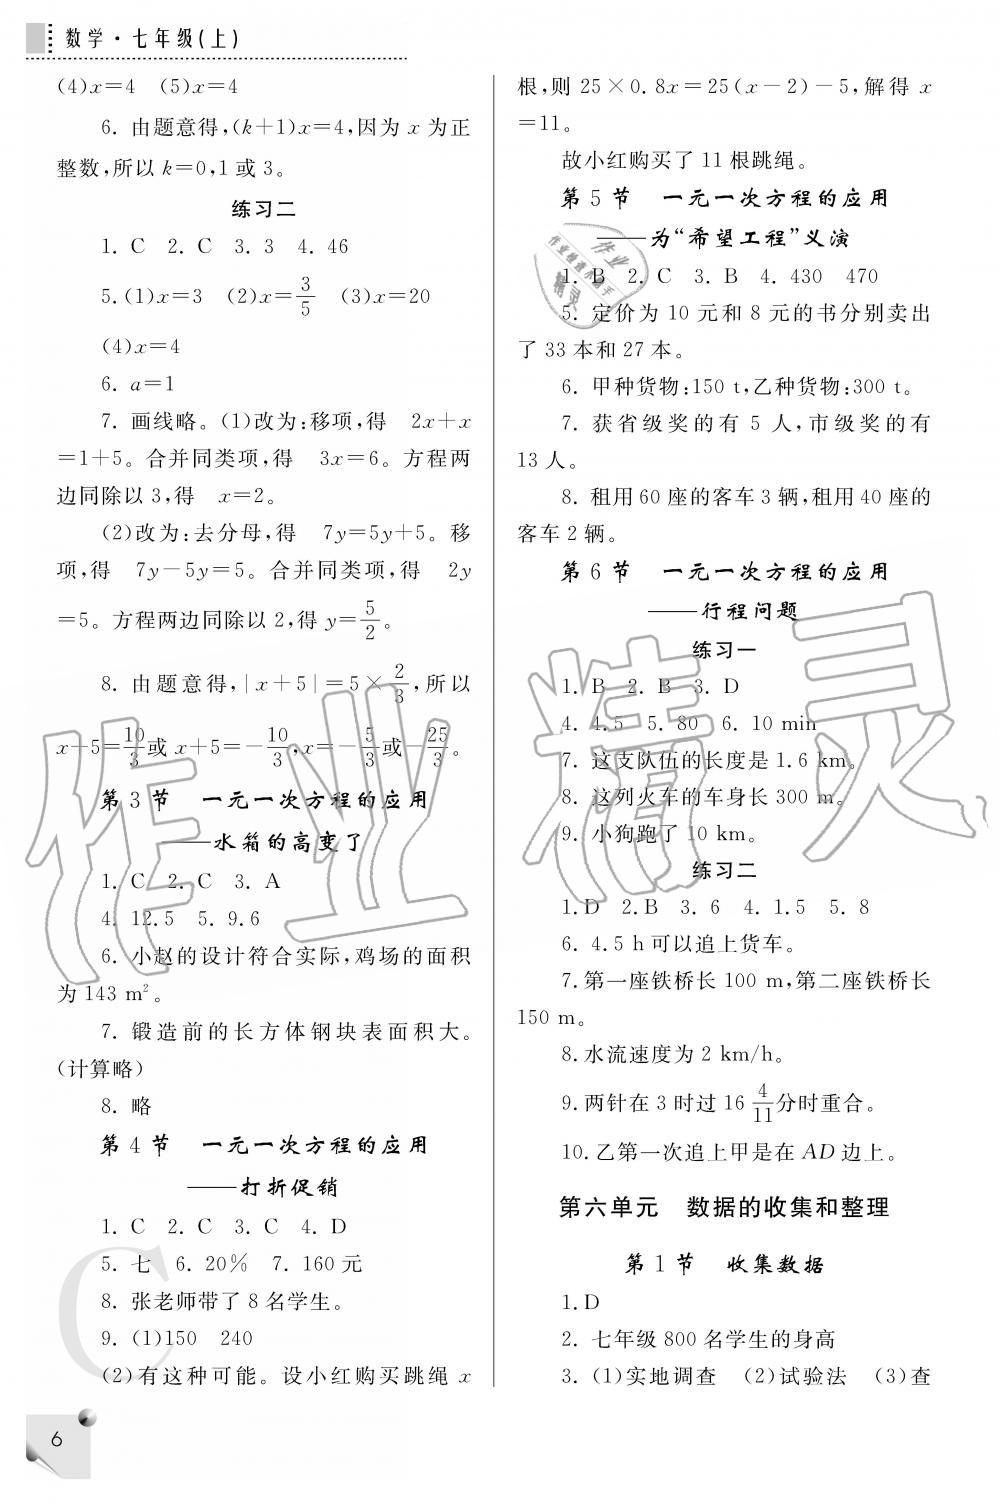 数学·七年级(上)
(4)x=4  (5)x=4
6. 由题意得,(k+1)x=4,因为 x 为正
整数,所以 k=0,1 或 3。
练习二
1. C  2. C  3. 3  4. 46
5.(1)x=3  (2)x=3/5  (3)x=20
(4)x=4
6. a=1
7. 画线略。(1)改为:移项,得  2x+x
=1+5。合并同类项,得  3x=6。方程两
边同除以 3,得  x=2。
(2)改为:去分母,得  7y=5y+5。移
项,得  7y-5y=5。合并同类项,得  2y
=5。方程两边同除以 2,得 y=5/2。
8. 由题意得,|x+5|=5×2/3,所以
x+5=10/3或 x+5=-10/3,x=-5/3或-25/3。
第 3 节  一元一次方程的应用
——水箱的高变了
1. C  2. C  3. A
4. 12.5  5. 9.6
6. 小赵的设计符合实际,鸡场的面积
为 143 m²。
7. 锻造前的长方体钢块表面积大。
(计算略)
8. 略
第 4 节  一元一次方程的应用
——打折促销
1. C  2. C  3. C  4. D
5. 七  6. 20%  7. 160 元
8. 张老师带了 8 名学生。
9. (1)150  240
(2)有这种可能。设小红购买跳绳 x
根,则 25×0.8x=25(x-2)-5,解得 x
=11。
故小红购买了 11 根跳绳。
第 5 节  一元一次方程的应用
——为“希望工程”义演
1. B  2. C  3. B  4. 430  470
5. 定价为 10 元和 8 元的书分别卖出
了 33 本和 27 本。
6. 甲种货物:150 t,乙种货物:300 t。
7. 获省级奖的有 5 人,市级奖的有
13 人。
8. 租用 60 座的客车 3 辆,租用 40 座的
客车 2 辆。
第 6 节  一元一次方程的应用
——行程问题
练习一
1. B  2. B  3. D
4. 4.5  5. 80  6. 10 min
7. 这支队伍的长度是 1.6 km。
8. 这列火车的车身长 300 m。
9. 小狗跑了 10 km。
练习二
1. D  2. B  3. 6  4. 1.5  5. 8
6. 4.5 h 可以追上货车。
7. 第一座铁桥长 100 m,第二座铁桥长
150 m。
8. 水流速度为 2 km/h。
9. 两针在 3 时过 16 4/11分时重合。
10. 乙第一次追上甲是在 AD 边上。
第六单元  数据的收集和整理
第 1 节  收集数据
1. D
2. 七年级 800 名学生的身高
3. (1)实地调查  (2)试验法  (3)查
6
作业精灵
C